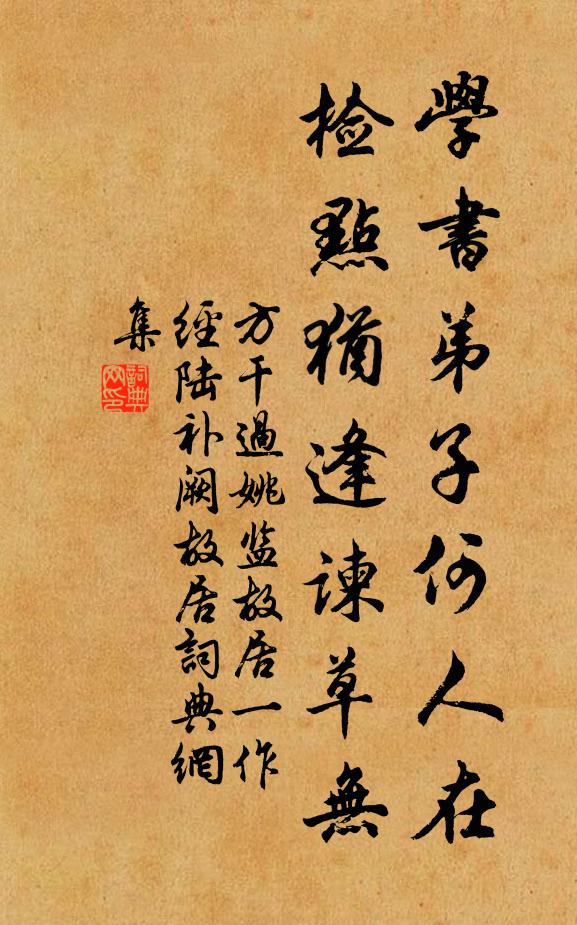 學書弟子何人在
檢點猶逢諫草無
方干過姚监故居一作
經陆补阙故居詞典網
集
詞典網印